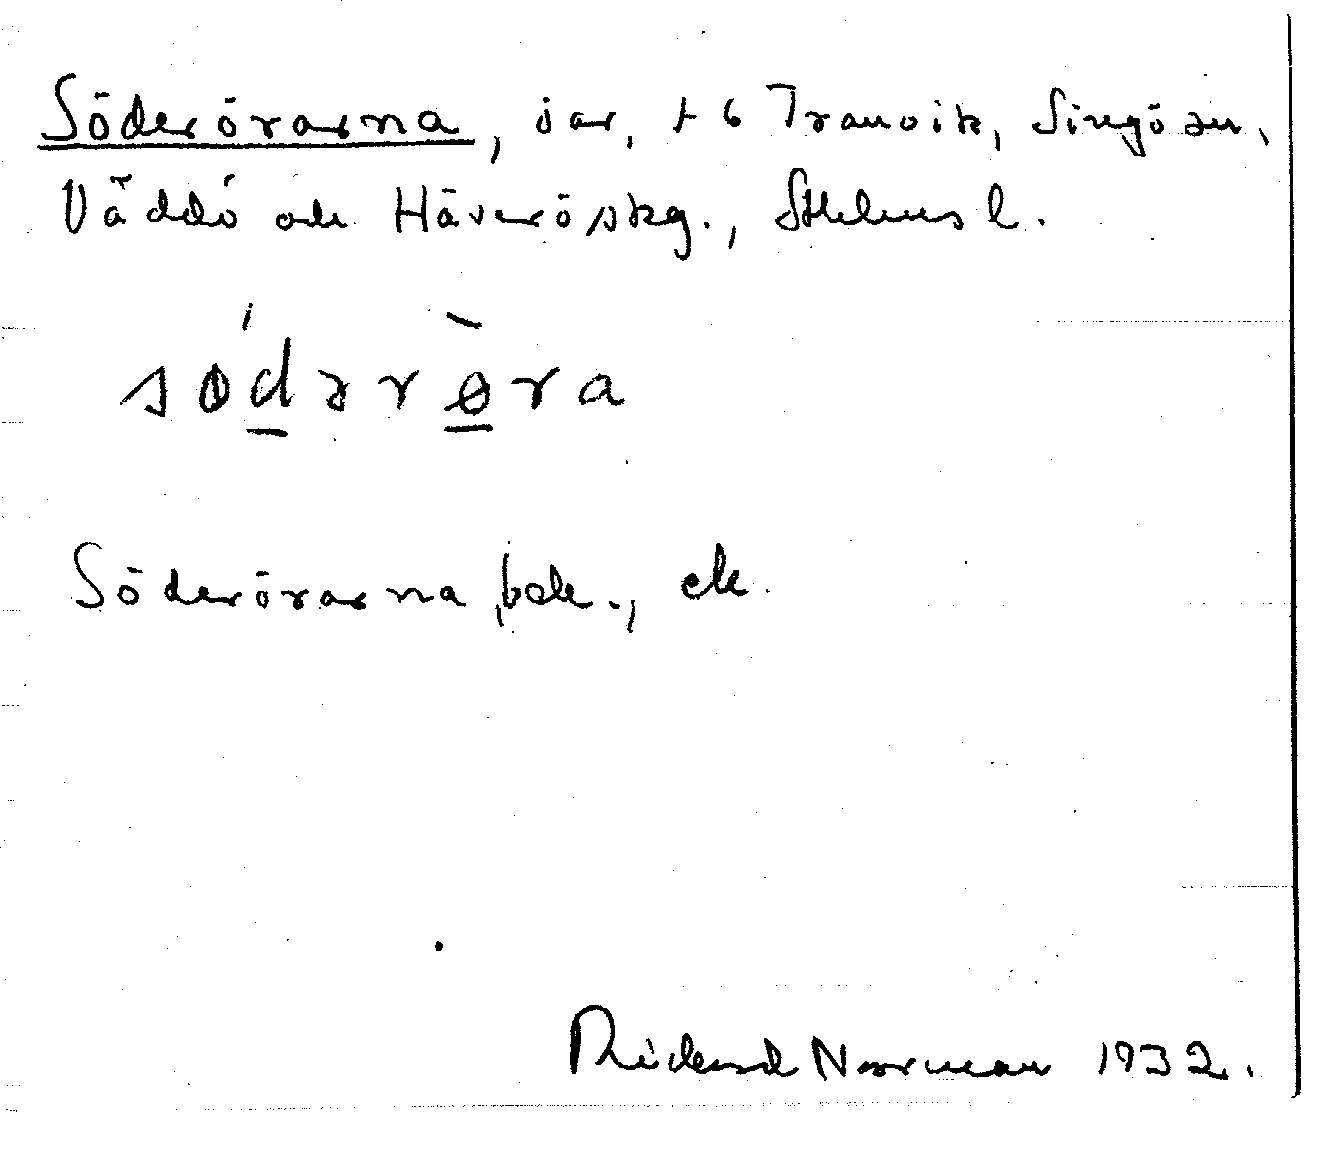 Söderörarna, öar, t 6 Tranvik, Singö sn,
Väddö och Häverö skg., Sthlms l.
sødərøra
Söderörarna bok., ek.
Rickard Norman 1932.